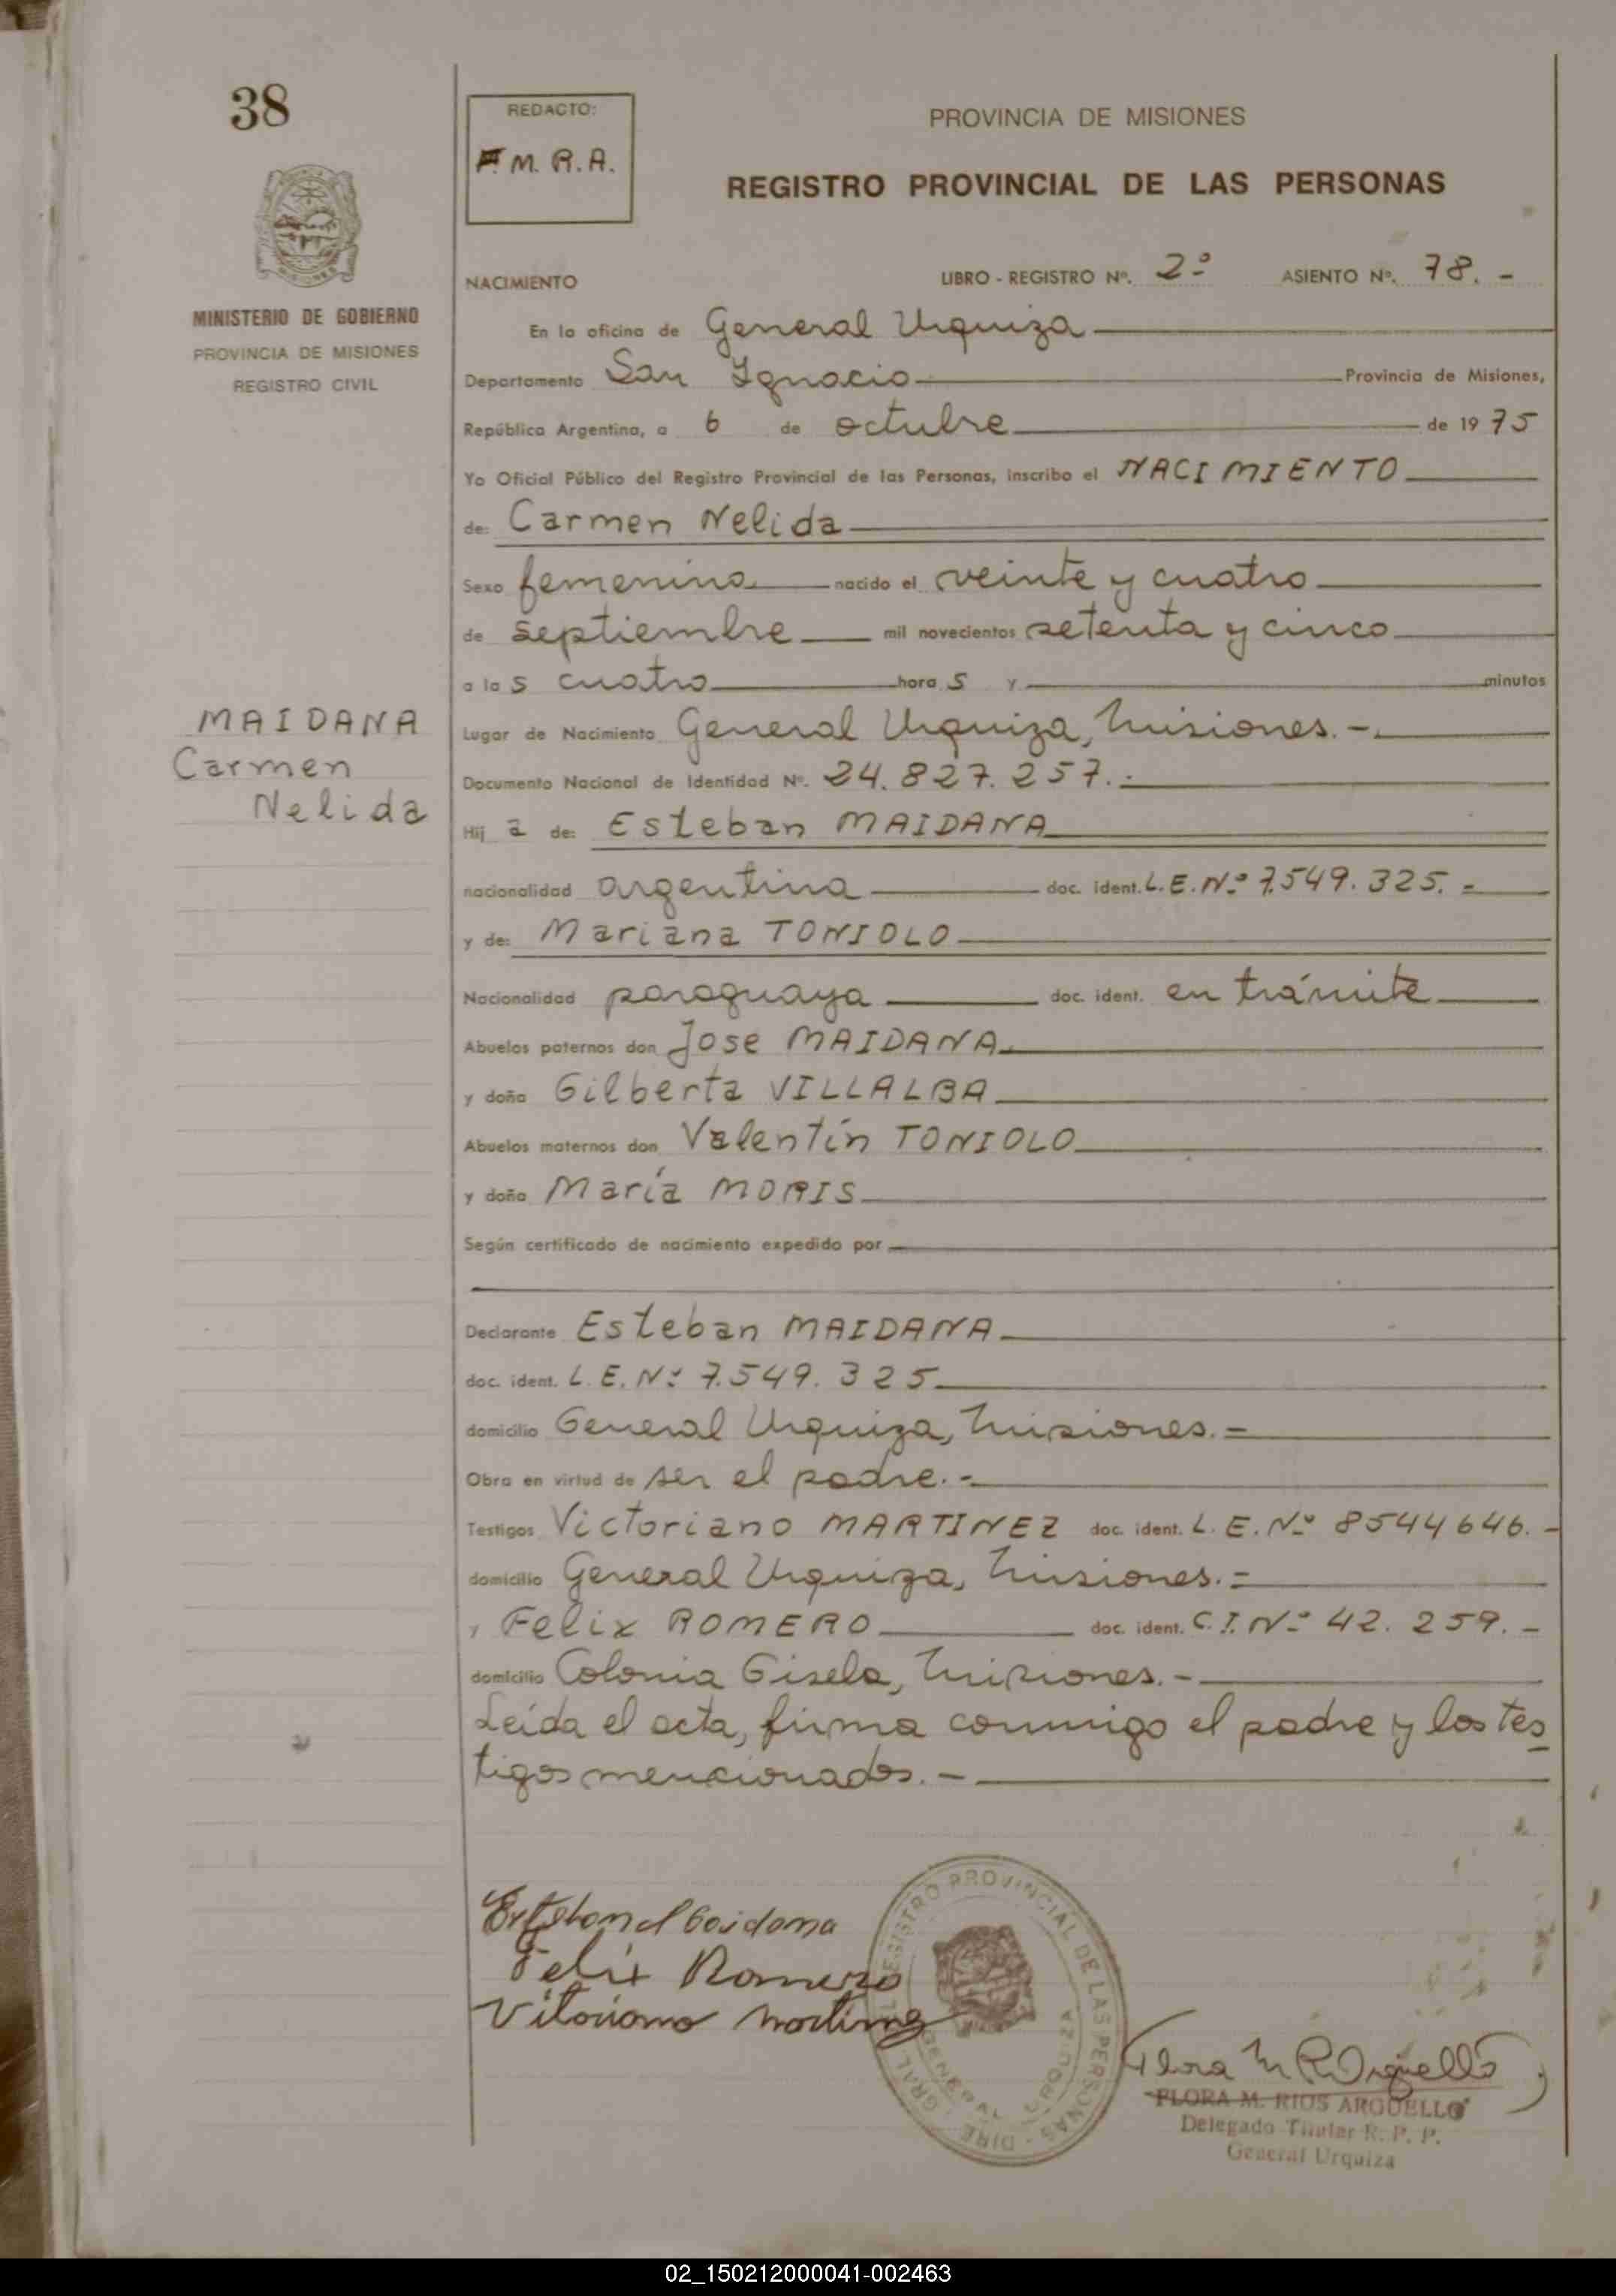 38
MINISTERIO DE GOBIERNO
PROVINCIA DE MISIONES
REGISTRO CIVIL
MAIDANA
Carmen
Nelida
REDACTO:
F. M. R. A.
PROVINCIA DE MISIONES
REGISTRO PROVINCIAL DE LAS PERSONAS
NACIMIENTO LIBRO - REGISTRO Nº. 2º ASIENTO Nº. 78. -
En la oficina de General Urquiza
Departamento San Ignacio Provincia de Misiones,
República Argentina, a 6 de octubre de 1975
Yo Oficial Público del Registro Provincial de las Personas, inscribo el NACIMIENTO
de: Carmen Nelida
Sexo femenino nacido el veinte y cuatro
de septiembre mil novecientos setenta y cinco
a las cuatro horas y minutos
Lugar de Nacimiento General Urquiza, Misiones. -
Documento Nacional de Identidad Nº. 24.827.257. -
Hija de: Esteban MAIDANA
nacionalidad argentina doc. ident. L.E. Nº 7.549.325. -
y de: Mariana TONIOLO
Nacionalidad paraguaya doc. ident. en trámite
Abuelos paternos don Jose MAIDANA
y doña Gilberta VILLALBA
Abuelos maternos don Valentín TONIOLO
y doña María MORIS
Según certificado de nacimiento expedido por
Declarante Esteban MAIDANA
doc. ident. L. E. Nº 7.549.325
domicilio General Urquiza, Misiones. -
Obra en virtud de ser el padre. -
Testigos Victoriano MARTINEZ doc. ident. L. E. Nº 8544646. -
domicilio General Urquiza, Misiones. -
y Felix ROMERO doc. ident. C.I. Nº 42.259. -
domicilio Colonia Gisela, Misiones. -
Leída el acta, firma conmigo el padre y los tes
tigos mencionados. -
Esteban Maidana
Felix Romero
Vitoriano Martinez
REGISTRO PROVINCIAL DE LAS PERSONAS - DIRE GRAL
GENERAL URQUIZA
Flora M R Arguello
FLORA M. RIOS ARGUELLO
Delegado Titular R. P. P.
General Urquiza
02_150212000041-002463